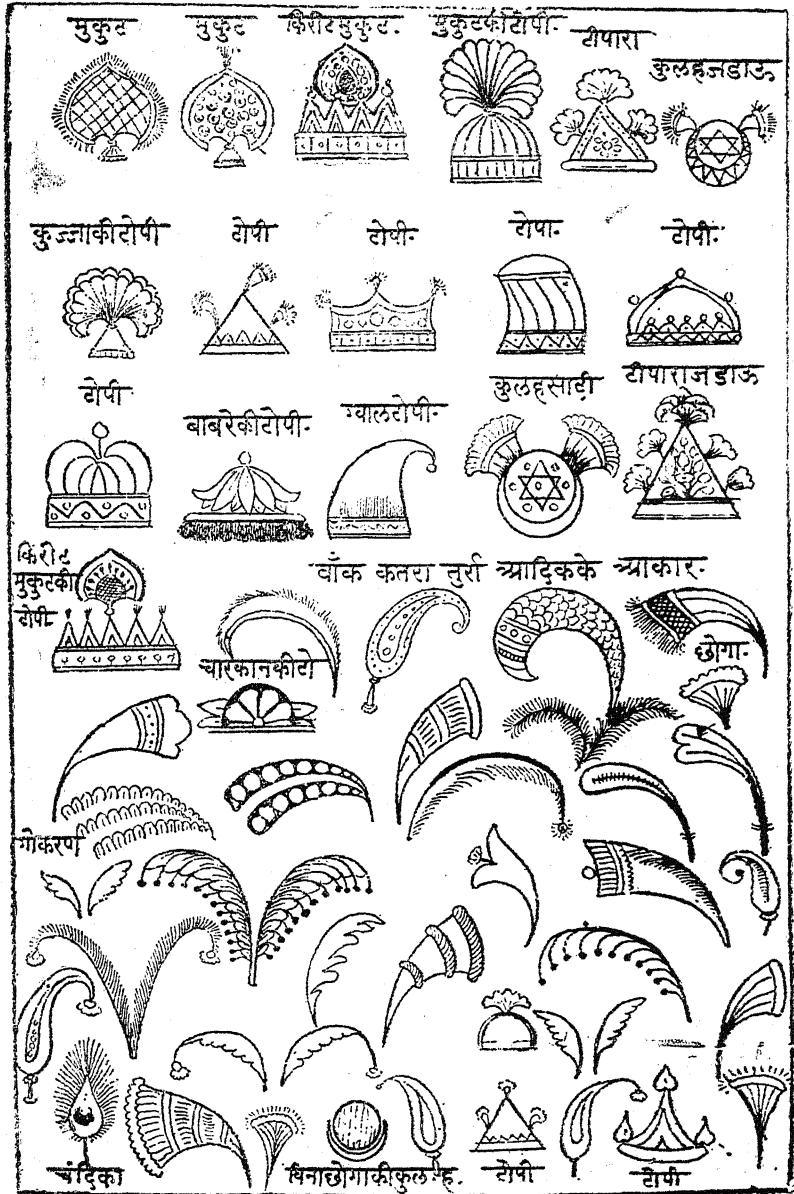 मुकुट
मुकुट
किरीटमुकुट.
मुकुटकीटोपी-
टीपारा
कुलहजडाऊ
कुज्जाकीटोपी
टोपी
टोपी-
टोपा-
टोपी-
टोपी
बाबरेकीटोपी-
ग्वालटोपी-
कुलहसादी
टीपाराजडाऊ
किरीट
मुकुटकी
टोपी
वाँक कतरा तुर्रा आदिकके आकार-
चारकानकीटो
छोगा-
गोकरण
चंद्रिका
विनाछोगाकीकुलह.
टोपी
टोपी